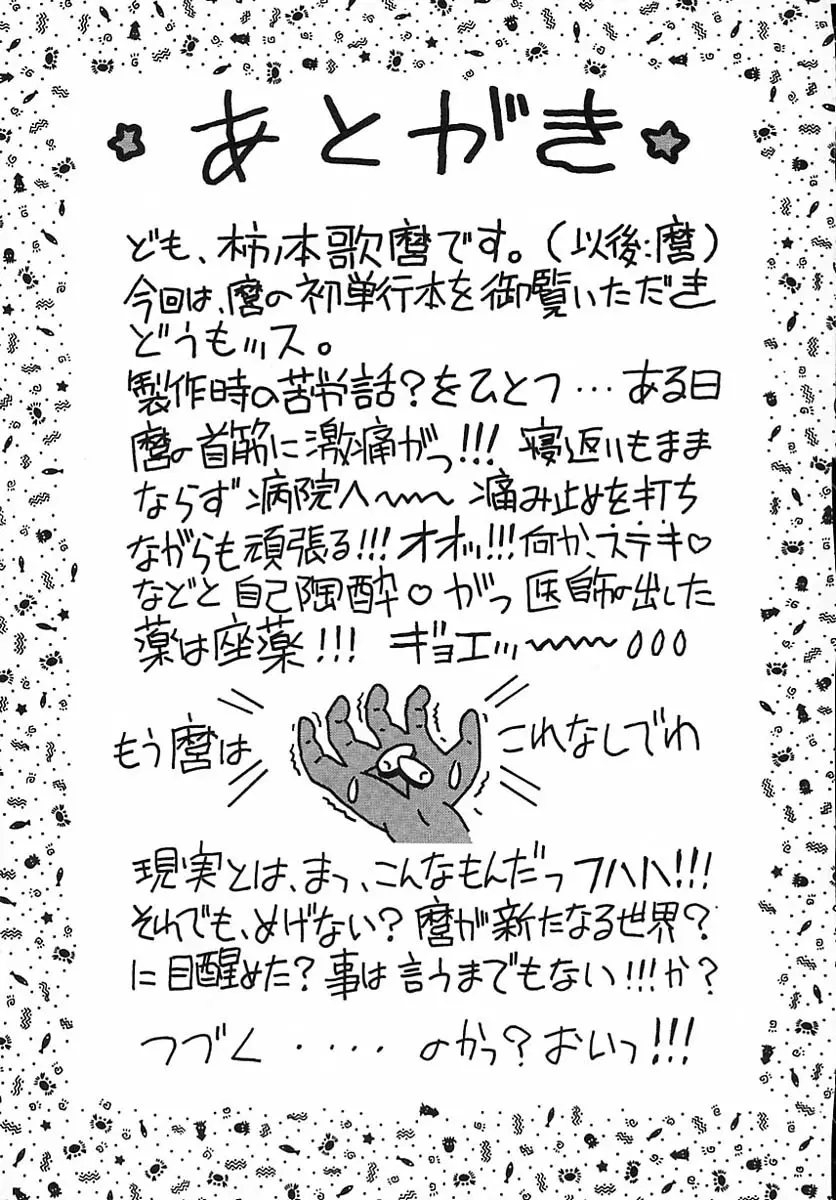 あとがき
ども、柿ノ本歌麿です。(以後:麿)
今回は、麿の初単行本を御覧いただき
どうもッス。
製作時の苦労話?をひとつ…ある日
麿の首筋に激痛がっ!!! 寝返りもまま
ならず病院へ〜〜 痛み止めを打ち
ながらも頑張る!!!オオッ!!!何か、ステキ♡
などと自己陶酔♡がっ 医師の出した
薬は座薬!!! ギョエッ〜〜〜ooo
もう麿は これなしでわ
現実とは、まっ、こんなもんだっフハハ!!!
それでも、めげない?麿が新たなる世界?
に目醒めた?事は言うまでもない!!!か?
つづく・・・・のかっ?おいっ!!!